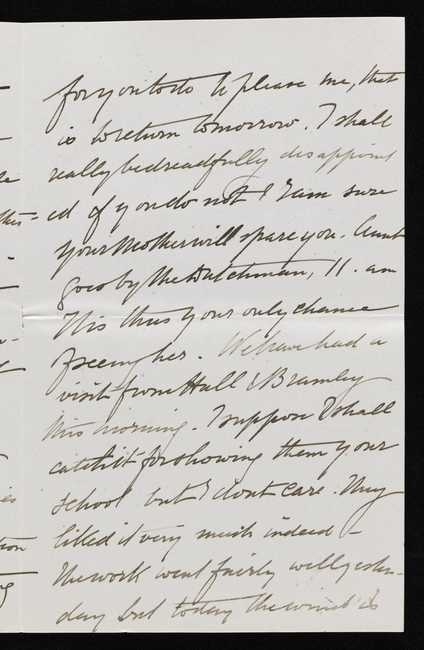 for you to do to please me, that
is to return tomorrow. I shall
really be dreadfully disappoint
ed if you do not & I am sure
your Mother will spare you. Aunt
goes by the Dutchman, 11. am
This thus your only chance
of seeing her. We have had a
visit from Hall & Bramley
this morning. I suppose I shall
catch it for showing them your
school but I dont care. They
liked it very much indeed –
The work went fairly well yester-
day but today the wind is